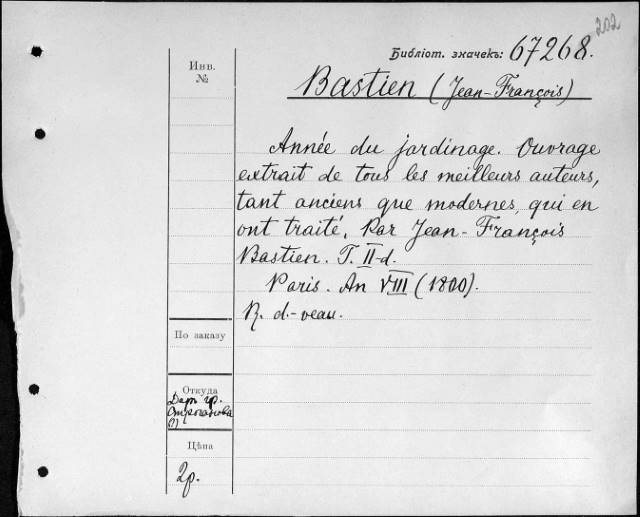 202
Библіот. значекъ: 67268.
Инв.
№
Bastien (Jean-François)
Année du jardinage. Ouvrage
extrait de tous les meilleurs auteurs,
tant anciens que modernes, qui en
ont traité. Par Jean-François
Bastien. T. II-d.
Paris. An VIII (1800).
R. d.-veau.
По заказу
Откуда
Даръ гр.
Строганова
Цѣна
2р.